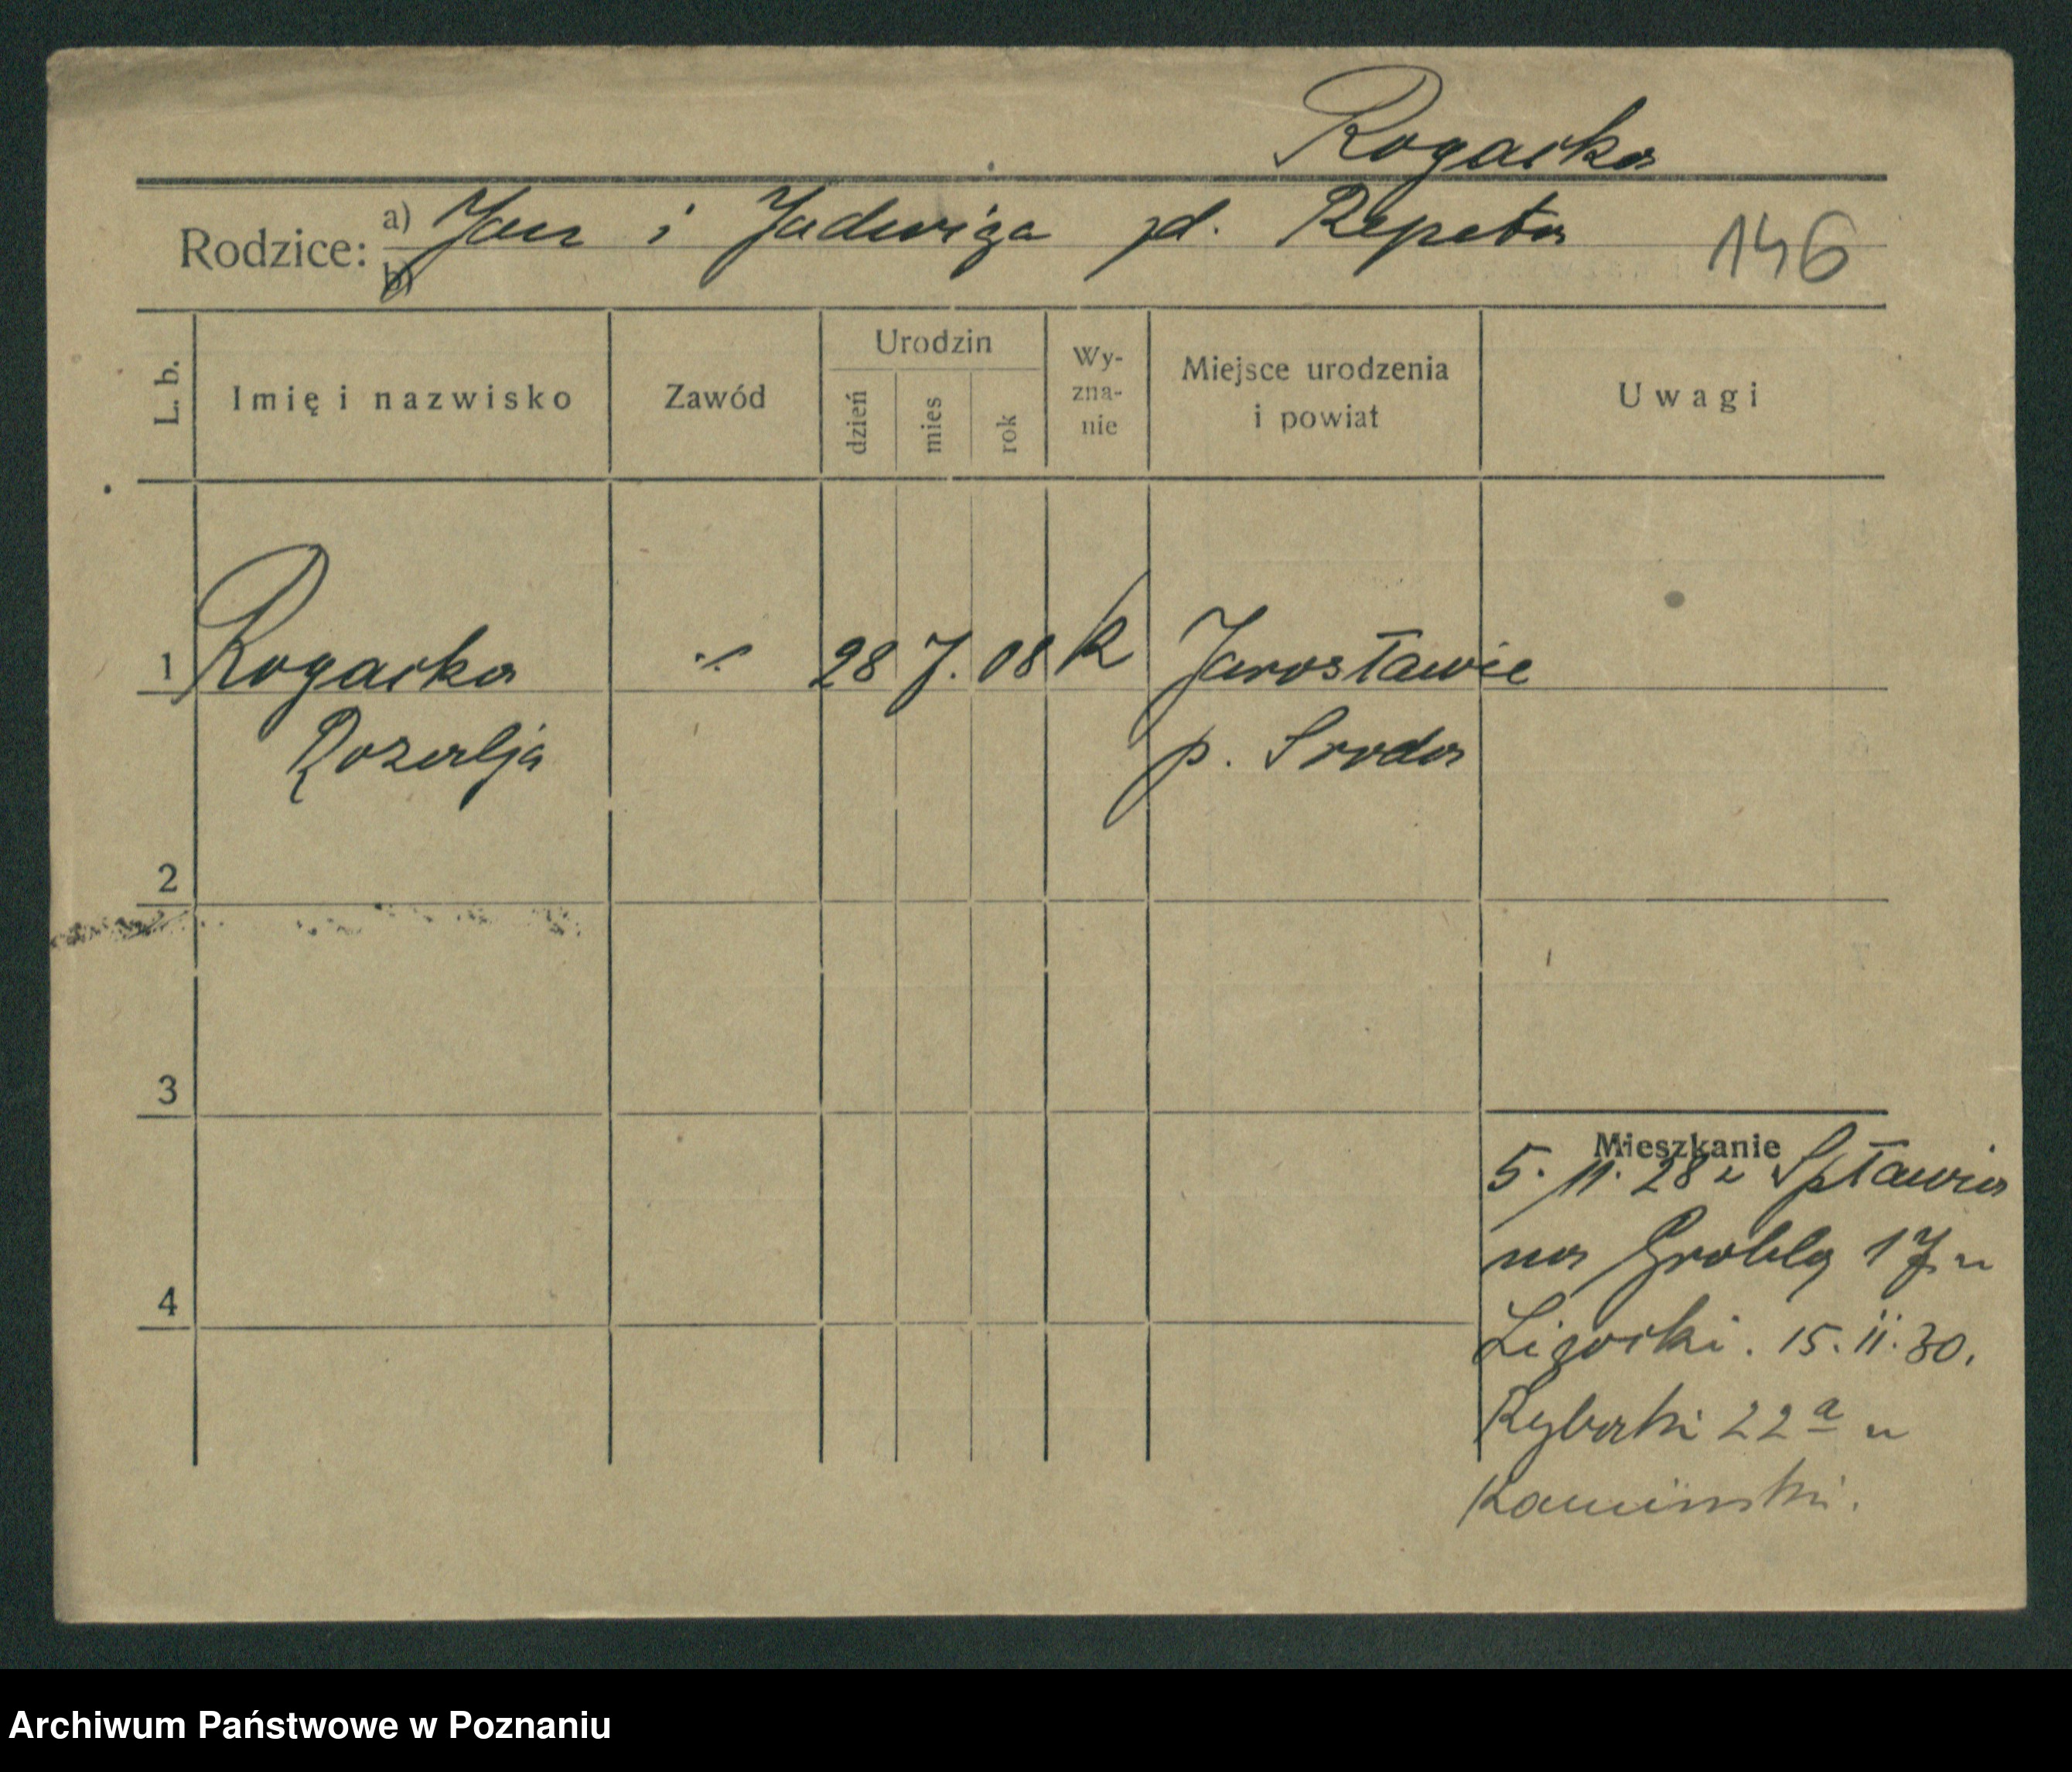 Rogacka
Rodzice: a) Jan i Jadwiga zd. Repeta
b)
146
L. b.
Imię i nazwisko
Zawód
Urodzin
dzień
mies
rok
Wy-
zna-
nie
Miejsce urodzenia
i powiat
Uwagi
1 Rogacka ·/. 28 7. 08 k Jarosławie
Rozalja p. Sroda
2
3
4
Mieszkanie
5. 11. 28 z Spławia
na Groblą 17 u
Ligocki. 15. II. 30.
Rybaki 22a u
Kamiński.
Archiwum Państwowe w Poznaniu